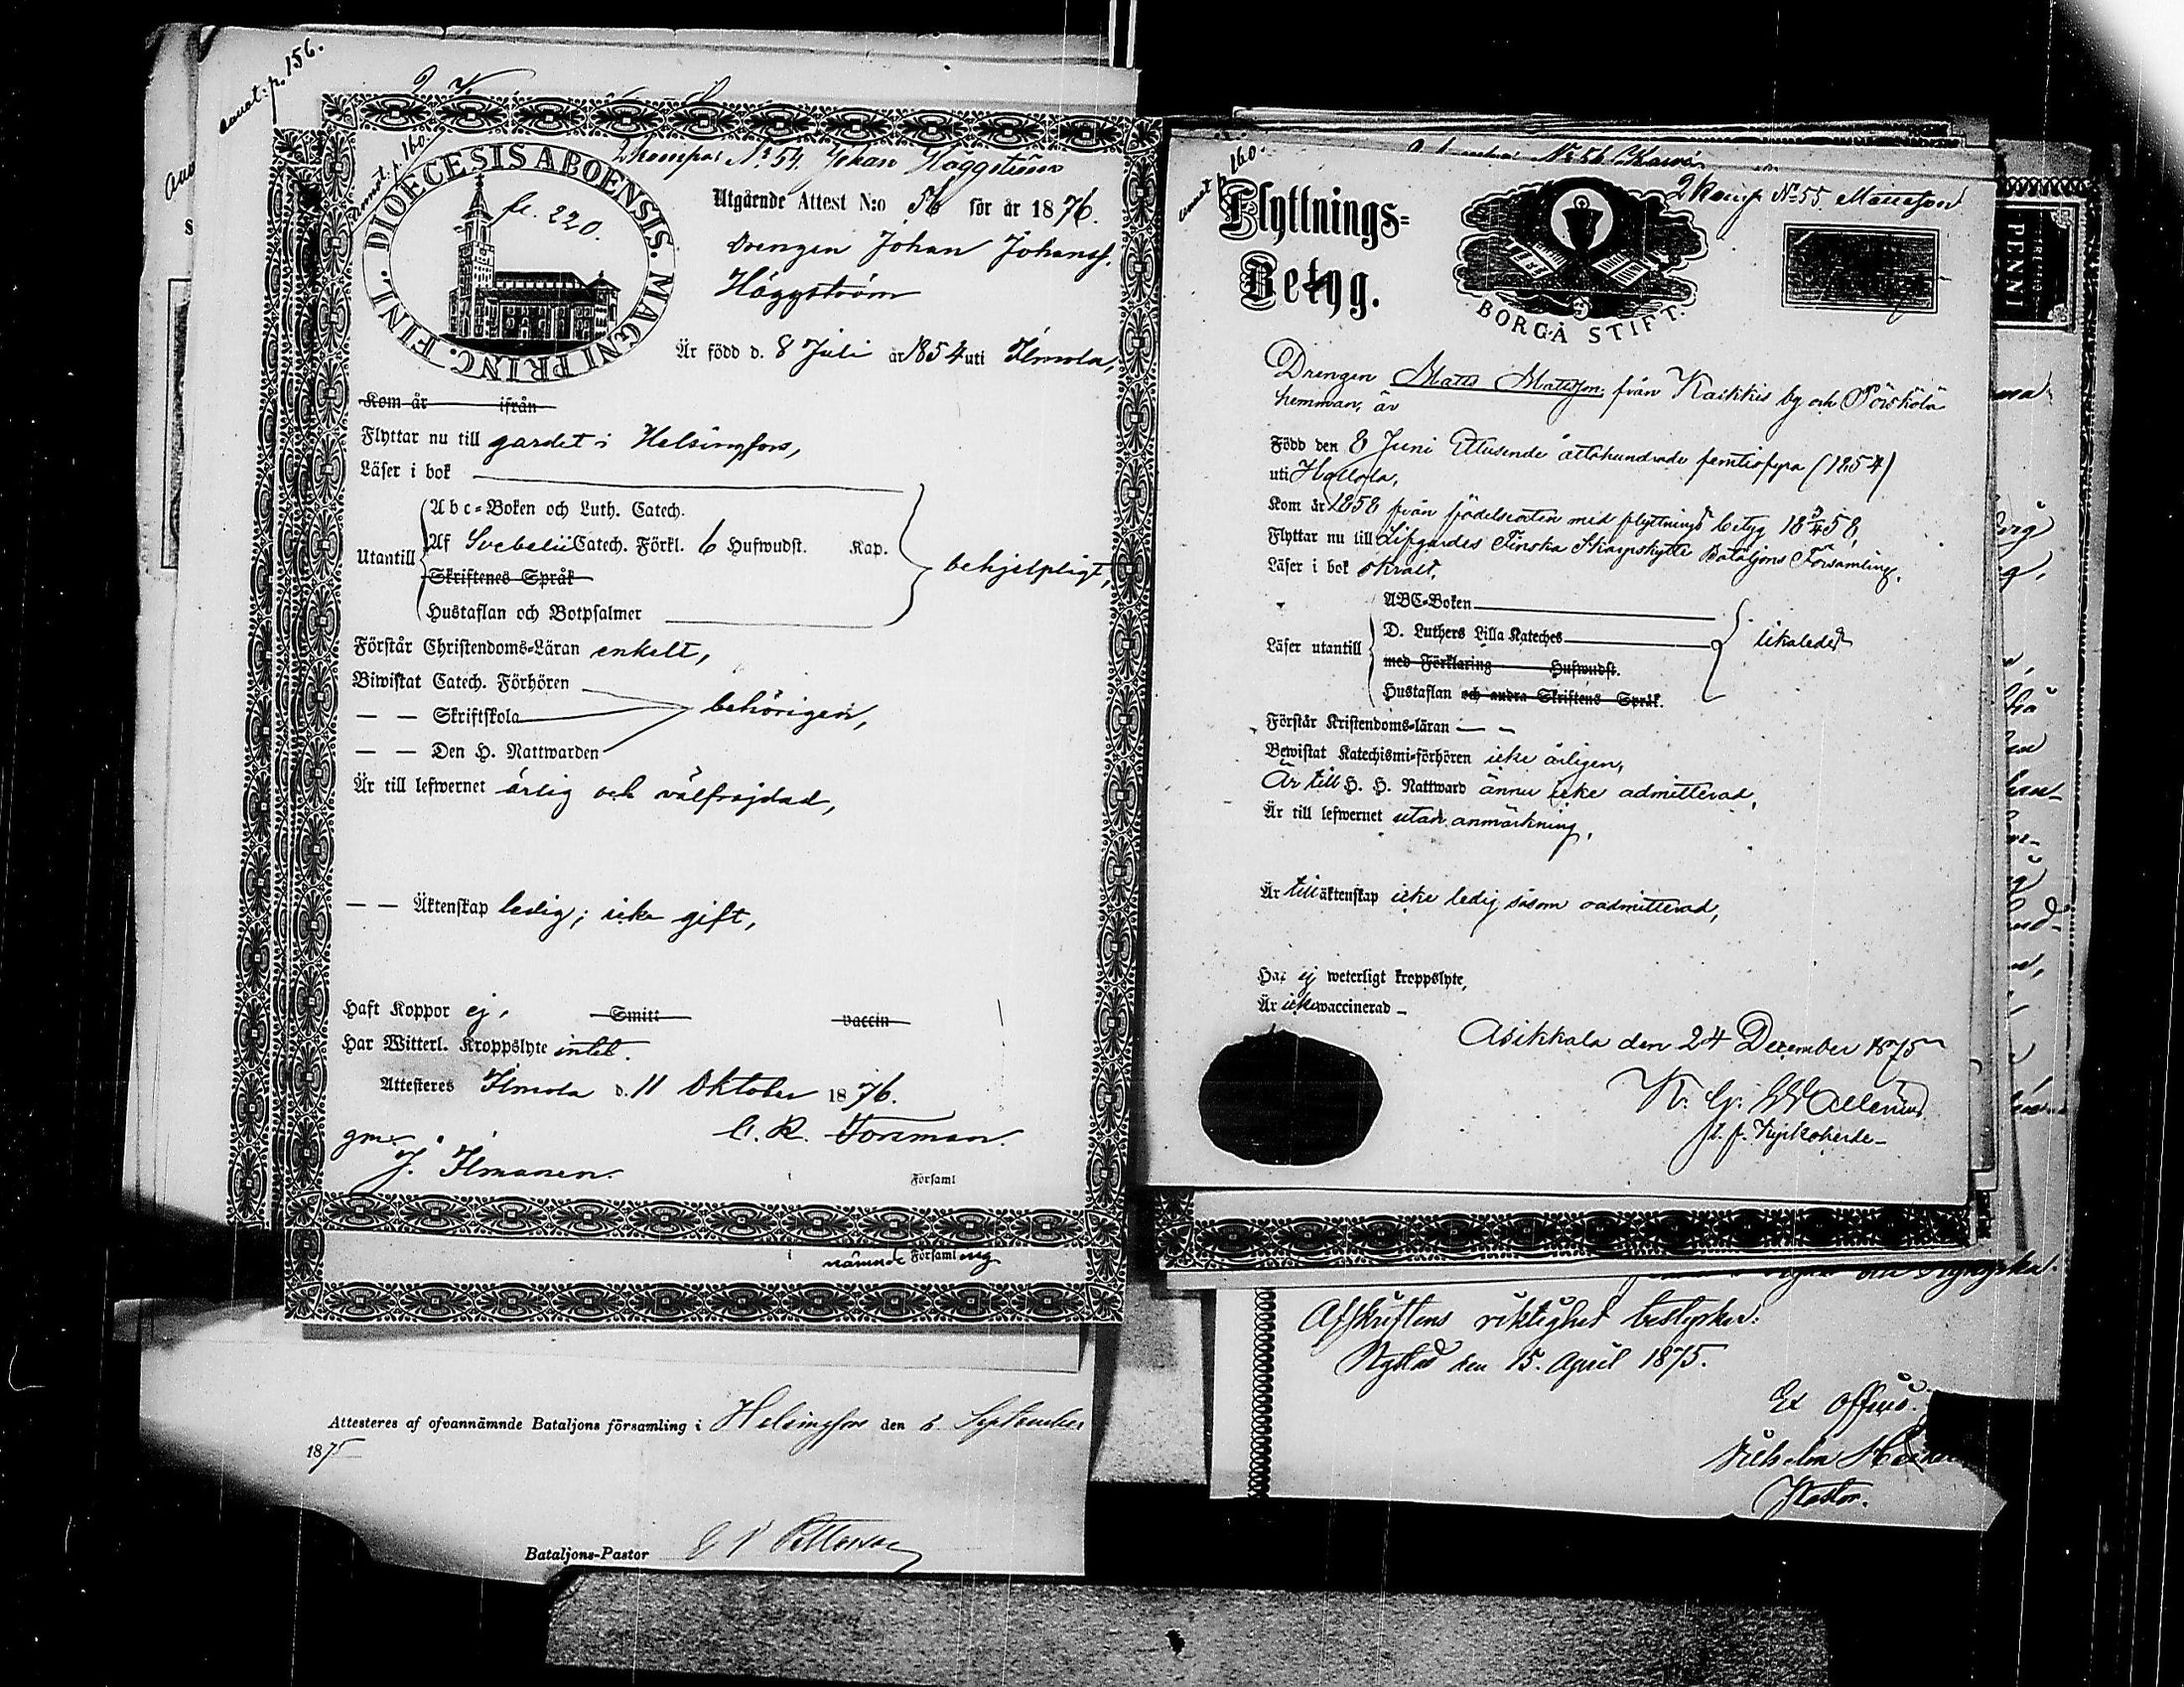 annot. p. 156.
annot. p. 160.
DIOECESIS ABOENSIS. MAGNI PRINC. FINL.
fl. 220.
2 komp. No 54. Johan Häggström
Utgående Attest N:o 56 för år 1876.
Drengen Johan Johanss.
Häggström
Är född d. 8 Juli år 1854 uti Ilmola,
Kom år ifrån
Flyttar nu till gardet i Helsingfors,
Läser i bok
Utantill
Abc-Boken och Luth. Catech.
Af Svebelii Catech. Förkl. 6 Hufwudst. Kap.
Skriftenes Språk
Hustaflan och Botpsalmer
behjelpligt,
Förstår Christendoms-Läran enkelt,
Biwistat Catech. Förhören
— — Skriftskola
— — Den H. Nattwarden
behörigen,
Är till lefwernet ärlig och välfrejdad,
— — Äktenskap ledig; icke gift,
Haft Koppor ej, Smitt vaccin
Har Witterl. Kroppslyte intet.
Attesteres Ilmola d. 11 Oktober 1876.
C. R. Forsman.
gm J. Ilmanen.
Församl
i nämnde Församling
Attesteres af ofvannämnde Bataljons församling i Helsingfors den 6 September
1875
Bataljons-Pastor
annot. p. 160.
No 56
2 komp No 55 Mattsson
Flyttnings-
Betyg.
BORGÅ STIFT.
PENNI
Drengen Matts Mattsson, från Kaikkis by och
hemman, är
Född den 8 Juni Ettusende åttahundrade femtiofyra (1854)
uti Hollola,
Kom år 1858 från födelseorten med flyttnings betyg 1858,
Flyttar nu till Lifgardes Finska Skarpskytte Bataljons Församling.
Läser i bok svalt,
Läser utantill
ABC-Boken
D. Luthers Lilla Kateches
med Förklaring Hufwudst.
Hustaflan och andra Skriftens Språk.
likaledes
Förstår Kristendoms-läran — —
Bewistat Katechismi-förhören icke årligen,
Är till H. H. Nattward ännu icke admitterad,
Är till lefwernet utan anmärkning,
Är till äktenskap icke ledig såsom oadmitterad,
Har ej weterligt kroppslyte,
Är icke vaccinerad —
Asikkala den 24 December 1875
K. G. Wallenius
t. f. Kyrkoherde
Afskriftens riktighet bestyrker:
Nystad den 15. April 1875.
Ex officio.
Pastor.